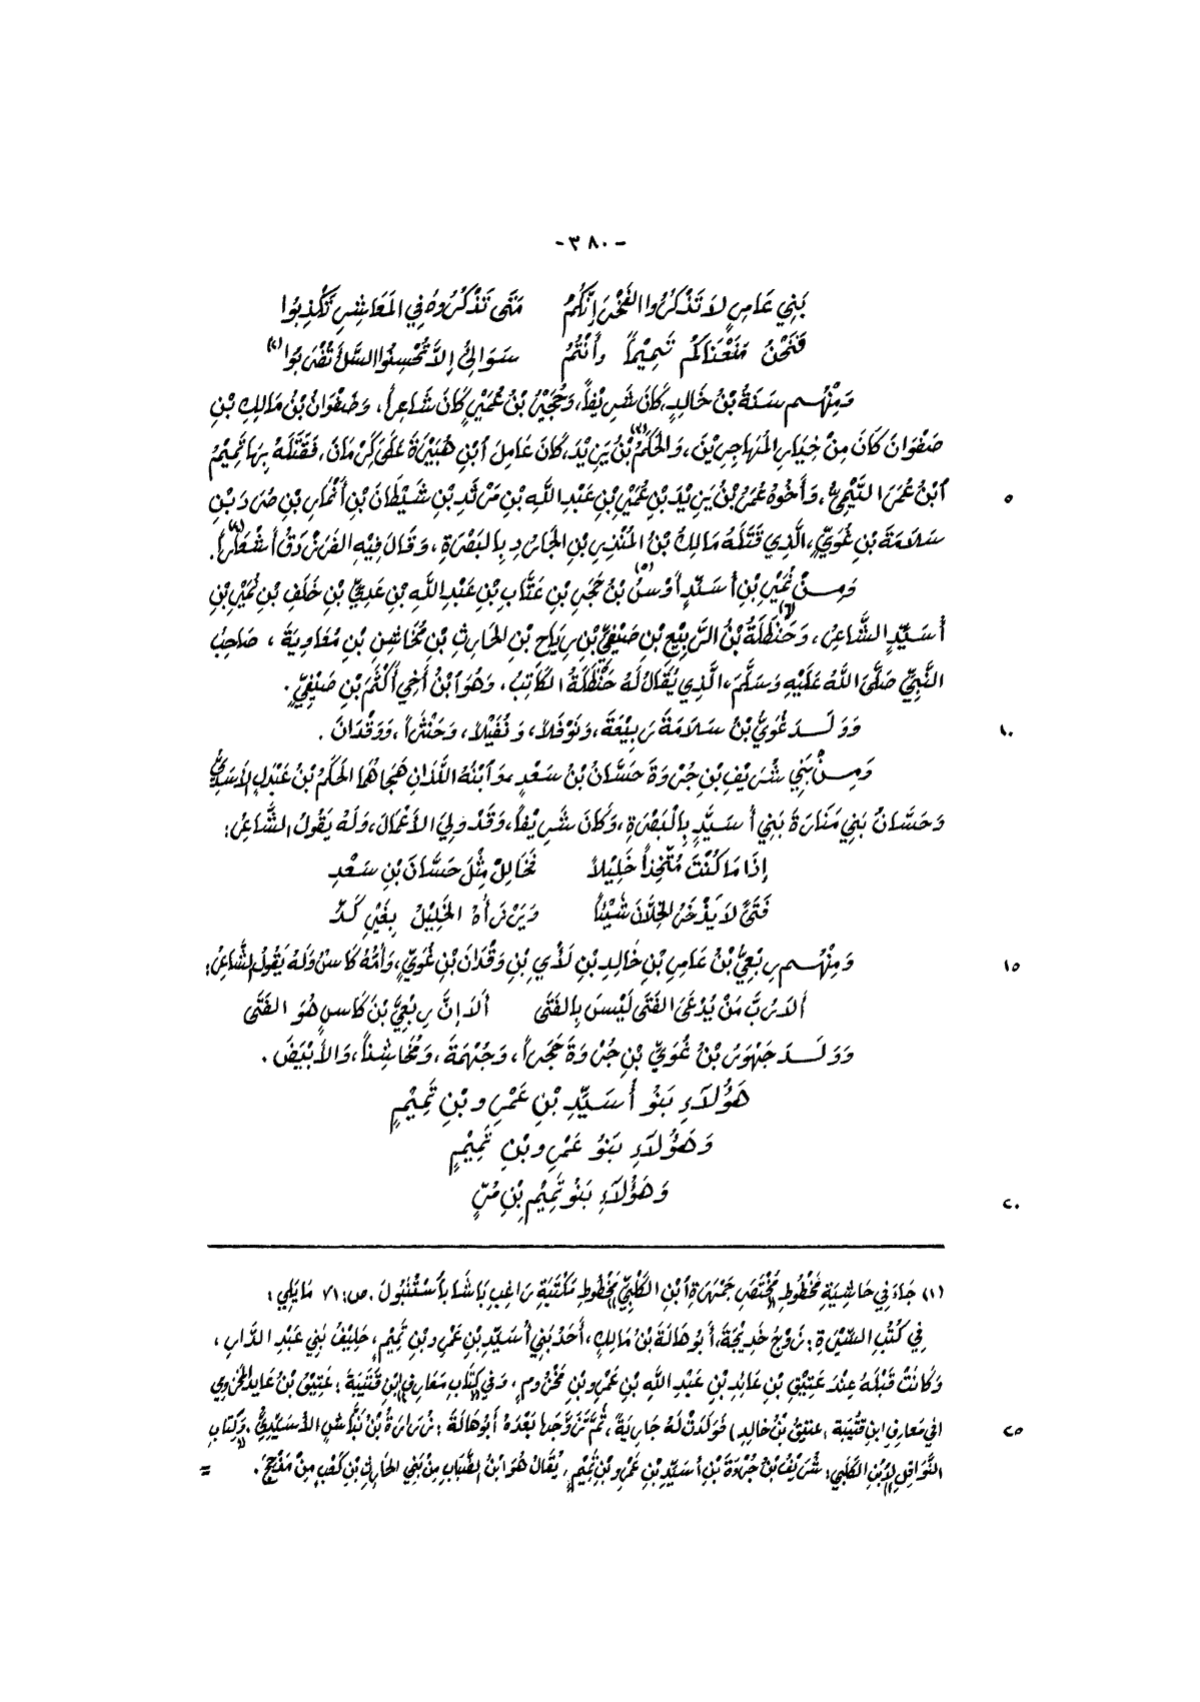 -٣٨٠-
بَنِي عَامِرٍ لاَ تَذْكُرُوا الفَخْرَ إِنَّكُمْ مَتَى تَذْكُرُوهُ فِي المَعَاشِرِ تَكْذِبُوا
فَنَحْنُ مَنَعْنَاكُمْ تَمِيْماً وأَنْتُمُ سَوَالِئُ إِلاَّ تُحْسِنُوا السَّلْءَ تُضْرَبُوا
وَمِنْهُم سَنَةُ بْنُ خَالِدٍ، كَانَ شَرِيْفاً، وَحُجَيْرُ بْنُ عُمَيْرٍ كَانَ شَاعِراً، وَصَفْوَانُ بْنُ مَالِكِ بْنِ
صَفْوَانَ كَانَ مِنْ خِيَارِ المُهَاجِرِيْنَ، وَالحَكَمُ بْنُ يَزِيْدَ، كَانَ عَامِلَ ابْنِ هُبَيْرَةَ عَلَى كِرْمَانَ، فَقَتَلَهُ بِهَا تَمِيْمُ
ابْنُ عُمَرَ التَّيْمِيُّ، وَأَخُوهُ عُمَرُ بْنُ يَزِيْدَ بْنِ عُمَيْرِ بْنِ عَبْدِ اللَّهِ بْنِ مَرْثَدِ بْنِ شَيْطَانَ بْنِ أَنْمَارِ بْنِ صُرَدَ بْنِ ٥
سَلاَمَةَ بْنِ غُوَيٍّ، الَّذِي قَتَلَهُ مَالِكُ بْنُ المُنْذِرِ بْنِ الجَارُودِ بِالبَصْرَةِ، وَقَالَ فِيْهِ الفَرَزْدَقُ أَشْعَاراً.
وَمِنْ نُمَيْرِ بْنِ أُسَيِّدٍ أَوْسُ بْنُ حَجَرِ بْنِ عَتَّابِ بْنِ عَبْدِ اللَّهِ بْنِ عَدِيِّ بْنِ خَلَفِ بْنِ نُمَيْرِ بْنِ
أُسَيِّدٍ الشَّاعِرُ، وَحَنْظَلَةُ بْنُ الرَّبِيْعِ بْنِ صَيْفِيِّ بْنِ رِيَاحِ بْنِ الحَارِثِ بْنِ مُخَاشِنِ بْنِ مُعَاوِيَةَ، صَاحِبُ
النَّبِيِّ صَلَّى اللَّهُ عَلَيْهِ وَسَلَّمَ، الَّذِي يُقَالُ لَهُ حَنْظَلَةُ الكَاتِبُ، وَهُوَ ابْنُ أَخِي أَكْثَمَ بْنِ صَيْفِيٍّ.
وَوَلَدَ غُوَيُّ بْنُ سَلاَمَةَ رَبِيْعَةَ، وَنَوْفَلاً، وَنُفَيْلاً، وَحَنْشَاً، وَوَقْدَانَ. ١٠
وَمِنْ بَنِي شُرَيْفِ بْنِ جُرْوَةَ حَسَّانُ بْنُ سَعْدٍ وَابْنُهُ اللَّذَانِ هَجَاهُمَا الحَكَمُ بْنُ عَبْدَلٍ الأَسَدِيُّ
وَحَسَّانُ بَنِي مَنَارَةَ بَنِي أُسَيِّدٍ بِالْبَصْرَةِ، وَكَانَ شَرِيْفاً، وَقَدْ وَلِيَ الأَعْمَالَ، وَلَهُ يَقُولُ الشَّاعِرُ:
إِذَا مَا كُنْتَ مُتَّخِذاً خَلِيْلاً فَخَالِلْ مِثْلَ حَسَّانَ بْنِ سَعْدِ
فَتَىً لاَ يَذْخَرُ الخِلاَّنَ شَيْئاً وَيَرْزَأُهُ الخَلِيْلُ بِغَيْرِ كَدِّ
وَمِنْهُم رِبْعِيُّ بْنُ عَامِرِ بْنِ خَالِدِ بْنِ لَأْيِ بْنِ وَقْدَانَ بْنِ غُوَيٍّ، وَأُمُّهُ كَاسُ وَلَهُ يَقُولُ الشَّاعِرُ: ١٥
أَلاَ رُبَّ مَنْ يُدْعَى الفَتَى لَيْسَ بِالفَتَى أَلاَ إِنَّ رِبْعِيَّ بْنَ كَاسٍ هُوَ الفَتَى
وَوَلَدَ جَهْوَرُ بْنُ غُوَيِّ بْنِ جُرْوَةَ حَجَراً، وَجُهْمَةَ، وَمُخَاشِناً، وَالأَبْيَضَ.
هَؤُلاَءِ بَنُو أُسَيِّدِ بْنِ عَمْرِو بْنِ تَمِيْمٍ
وَهَؤُلاَءِ بَنُو عَمْرِو بْنِ تَمِيْمٍ
وَهَؤُلاَءِ بَنُو تَمِيْمِ بْنِ مُرٍّ ٢٠
(١) جَاءَ فِي حَاشِيَةِ مَخْطُوطِ مُخْتَصَرِ جَمْهَرَةِ ابْنِ الكَلْبِيِّ مَخْطُوطِ مَكْتَبَةِ رَاغِبِ بَاشَا بِأَسْتَنْبُولَ. ص: ٧١ مَايَلِي:
فِي كُتُبِ السِّيْرَةِ: زَوْجُ خَدِيْجَةَ، أَبُو هَالَةَ بْنُ مَالِكٍ، أَحَدُ بَنِي أُسَيِّدِ بْنِ عَمْرِو بْنِ تَمِيْمٍ، حَلِيْفُ بَنِي عَبْدِ الدَّارِ،
وَكَانَتْ قَبْلَهُ عِنْدَ عَتِيْقِ بْنِ عَائِدِ بْنِ عَبْدِ اللهِ بْنِ عَمْرِو بْنِ مَخْزُومٍ، وَفِي كِتَابِ مَعَارِفِ ابْنِ قُتَيْبَةَ: عَتِيْقُ بْنُ عَابِدٍ المَخْزُومِيّ
(في مَعَارِفِ ابنِ قُتَيْبَة، عتيقُ بْنُ خالِدٍ) فَوَلَدَتْ لَهُ جَارِيَةً، ثُمَّ تَزَوَّجَهَا بَعْدَهُ أَبُو هَالَةَ: زُرَارَةُ بْنُ نَبَّاشٍ الأُسَيِّدِيُّ. وَكِتَابِ ٢٥
النَّوَاقِلِ لِابْنِ الكَلْبِي: شُرَيْفُ بْنُ جُرْوَةَ بْنِ أُسَيِّدِ بْنِ عَمْرِو بْنِ تَمِيْمٍ، يُقَالُ هُوَ ابْنُ الضِّبَابِ مِنْ بَنِي الحَارِثِ بْنِ كَعْبٍ مِنْ مَذْحِجَ. =